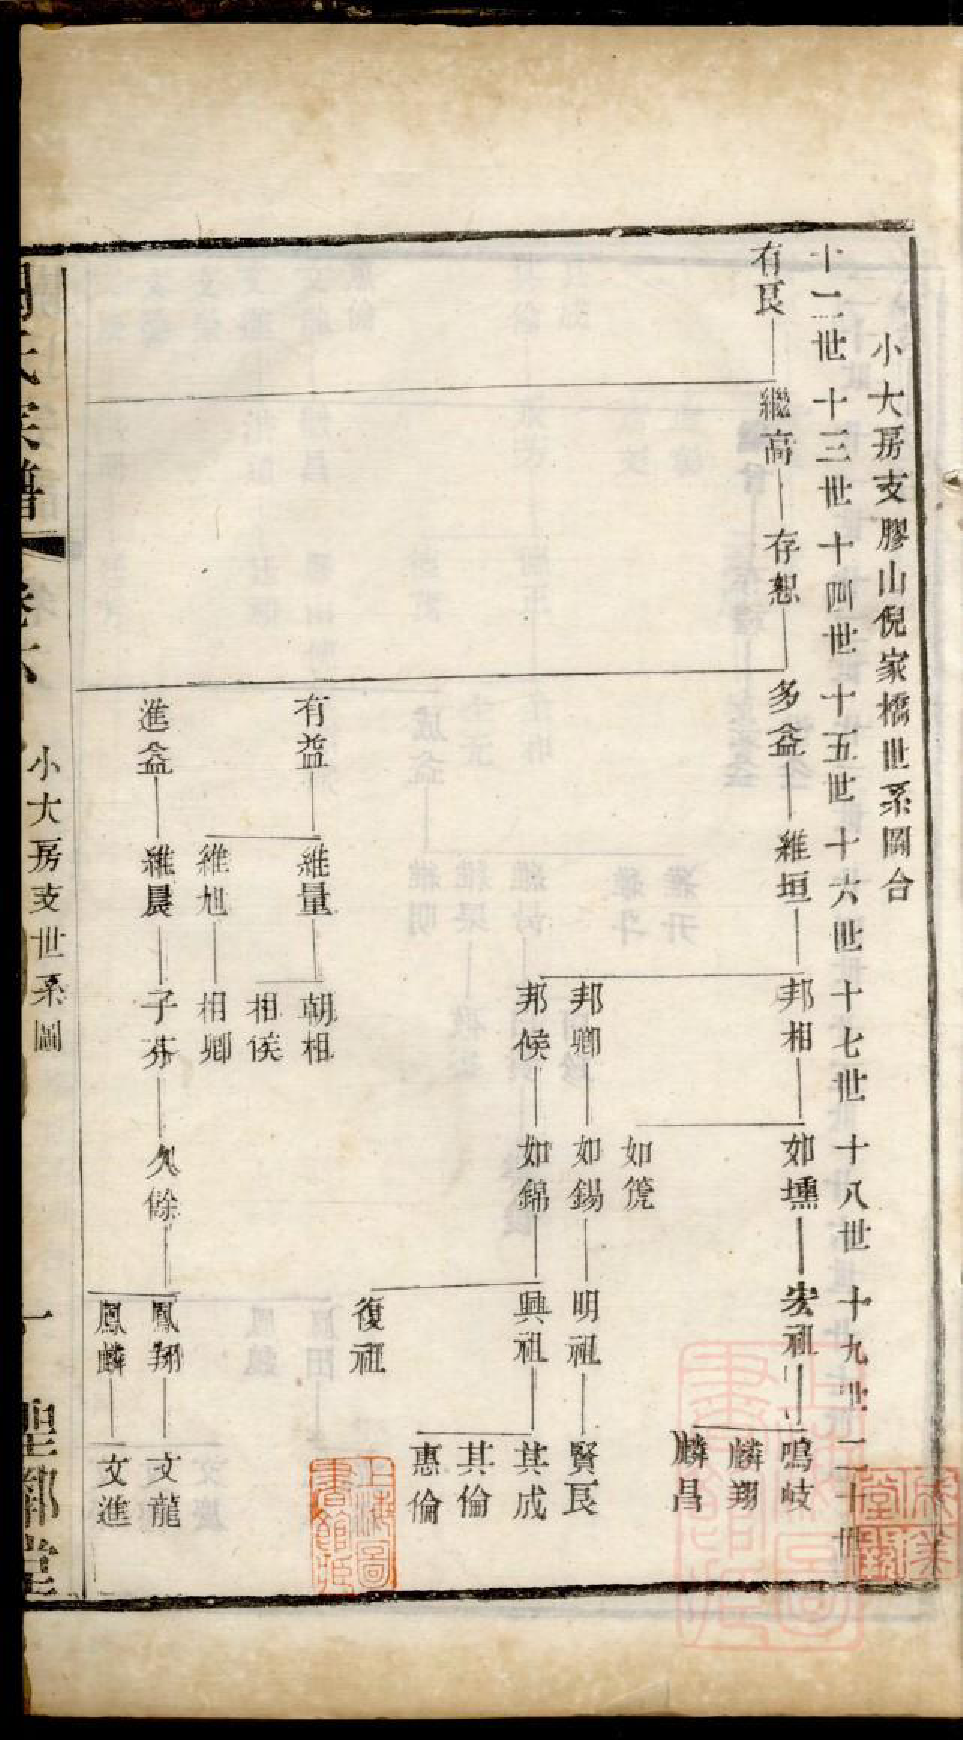 小大房支膠山倪家橋世系圖台
十二世 十三世 十四世 十五世 十六世 十七世 十八世 十九世 二十世
有良 繼高 存恕 多益 維垣 邦相 如壎 宏祖 鳴岐
麟翔
麟昌
如箎
邦卿 如錫 明祖 賢良
邦候 如錦 興祖 其成
其倫
惠倫
復祖
有益 維量 朝相
相侯
維旭 相卿
進益 維晨 子芬 久餘 鳳翔 文龍
鳳麟 文進
氏宗譜 卷六 小大房支世系圖 一